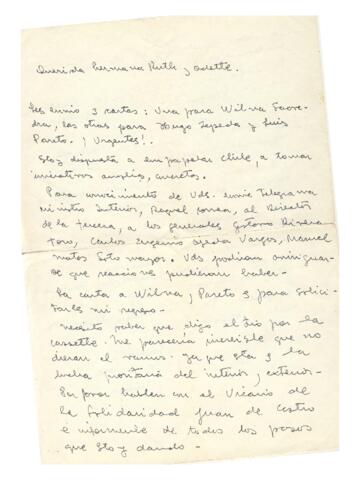 Querida hermana Ruth y Odette.
Les envio 3 cartas: Una para Wilna Saave-
dra, las otras para Hugo Zepeda y Luis
Pareto. ¡Urgentes!.
Estoy dispuesta a empapelar Chile, a tomar
iniciativas amplias, concretas.
Para conocimiento de Uds. envie Telegrama
ministro Interior, Raquel Correa, al Director
de la Tercera, a los generales Gustavo Rivera
Toro, Carlos Eugenio Ojeda Vargas, Manuel
Matas Soto Mayor. Uds podrian averiguar
de que reacciones pudieron haber-
La carta a Wilna y Pareto es para solici-
tarles mi regreso-
Necesito saber que dijo el Tío por la
cassette. Me pareceria increible que no
dieran el ramus. ya que esta es la
lucha del interior y exterior-
Por favor hablen con el Vicario de
la Solidaridad Juan de Castro
é informenle de todos los pasos
que estoy dando-